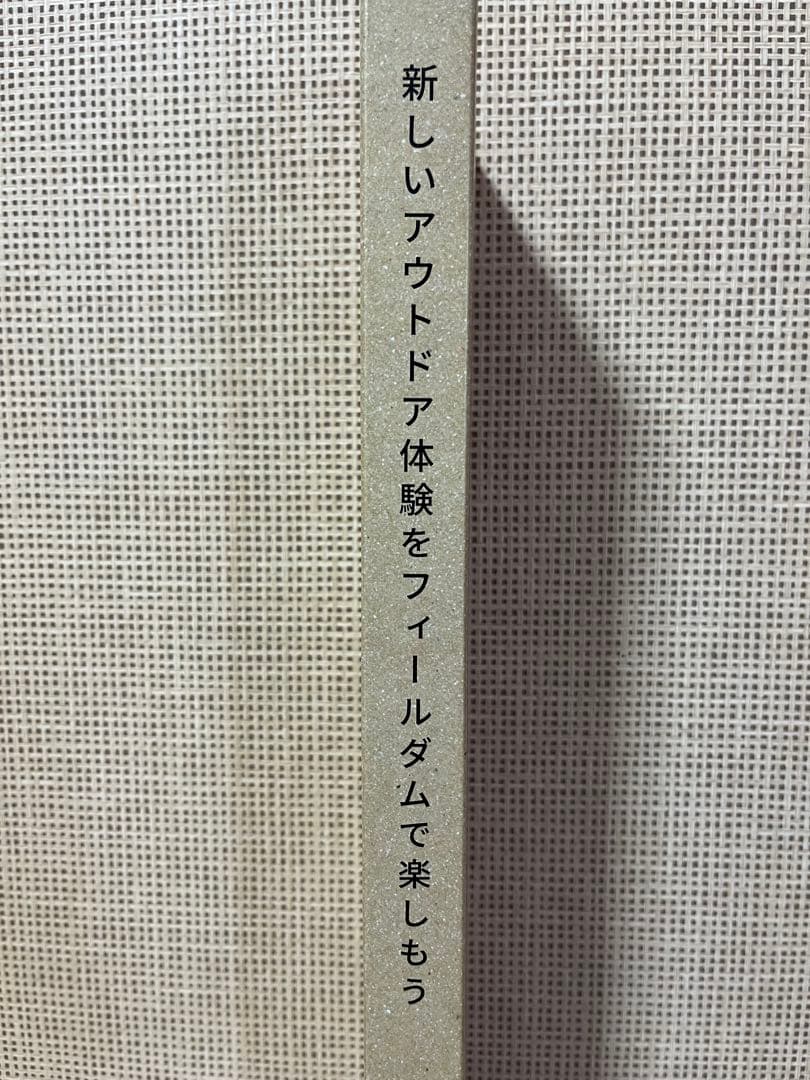 新しいアウトドア体験をフィールダムで楽しもう